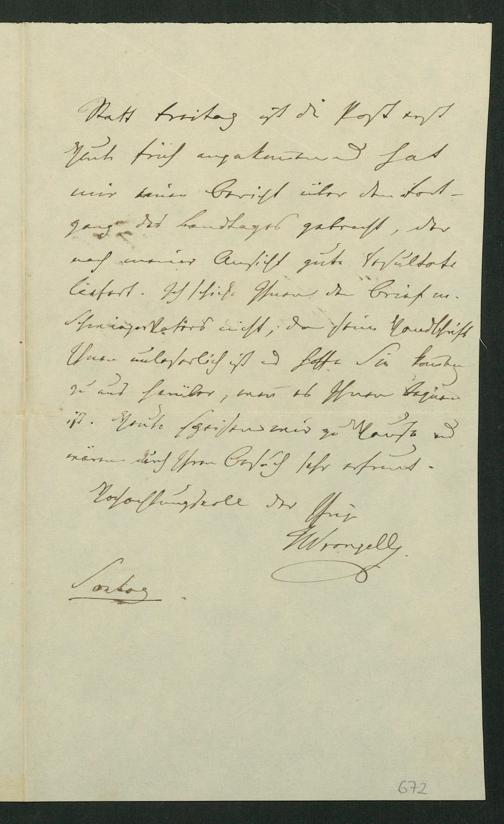 Statt Freitag ist die Post erst
heute früh angekommen und hat
mir einen Bericht über den Fort-
gang des Landtages gebracht, der
nach meiner Ansicht gute Resultate
liefert. Ich schicke Ihnen den Brief m.
Schwiegervaters nicht, da seine Handschrift
Ihnen unleserlich ist und hoffe Sie kommen
zu uns herüber, wenn es Ihnen bequem
ist. Heute speisen wir zu Hause und
wären durch Ihren Besuch sehr erfreut.
Hochachtungsvoll der Ihrige
Wrangell
Sontag
672